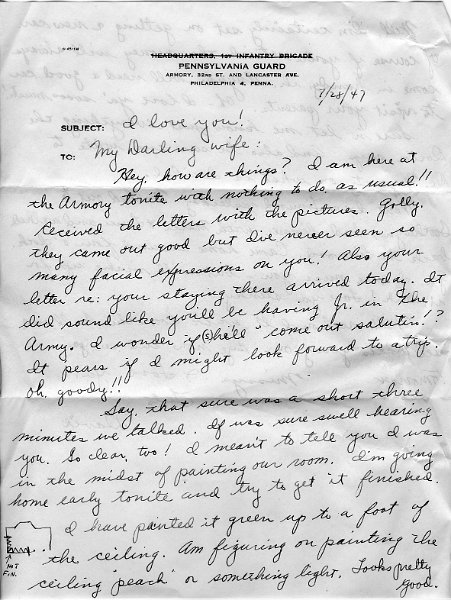 HEADQUARTERS, 1ST INFANTRY BRIGADE
PENNSYLVANIA GUARD
ARMORY, 32ND ST. AND LANCASTER AVE.
PHILADELPHIA 4, PENNA.
7/28/47
SUBJECT: I love you!
TO: My Darling wife:
Hey, how are things? I am here at
the Armory tonite with nothing to do, as usual!!
Received the letters with the pictures. Golly,
they came out good but I've never seen so
many facial expressions on you! Also your
letter re: your staying there arrived today. It
did sound like you'll be having Jr. in the
Army. I wonder if (s)he'll "come out salutin'!?
It pears if I might look forward to a trip.
Oh, goody!!
Say, that sure was a short three
minutes we talked. It was sure swell hearing
you. So clear, too! I meant to tell you I was
in the midst of painting our room. I'm going
home early tonite and try to get it finished.
I have painted it green up to a foot of
the ceiling. Am figuring on painting the
ceiling "peach" or something light. Looks pretty
good.
NOT
FIN.